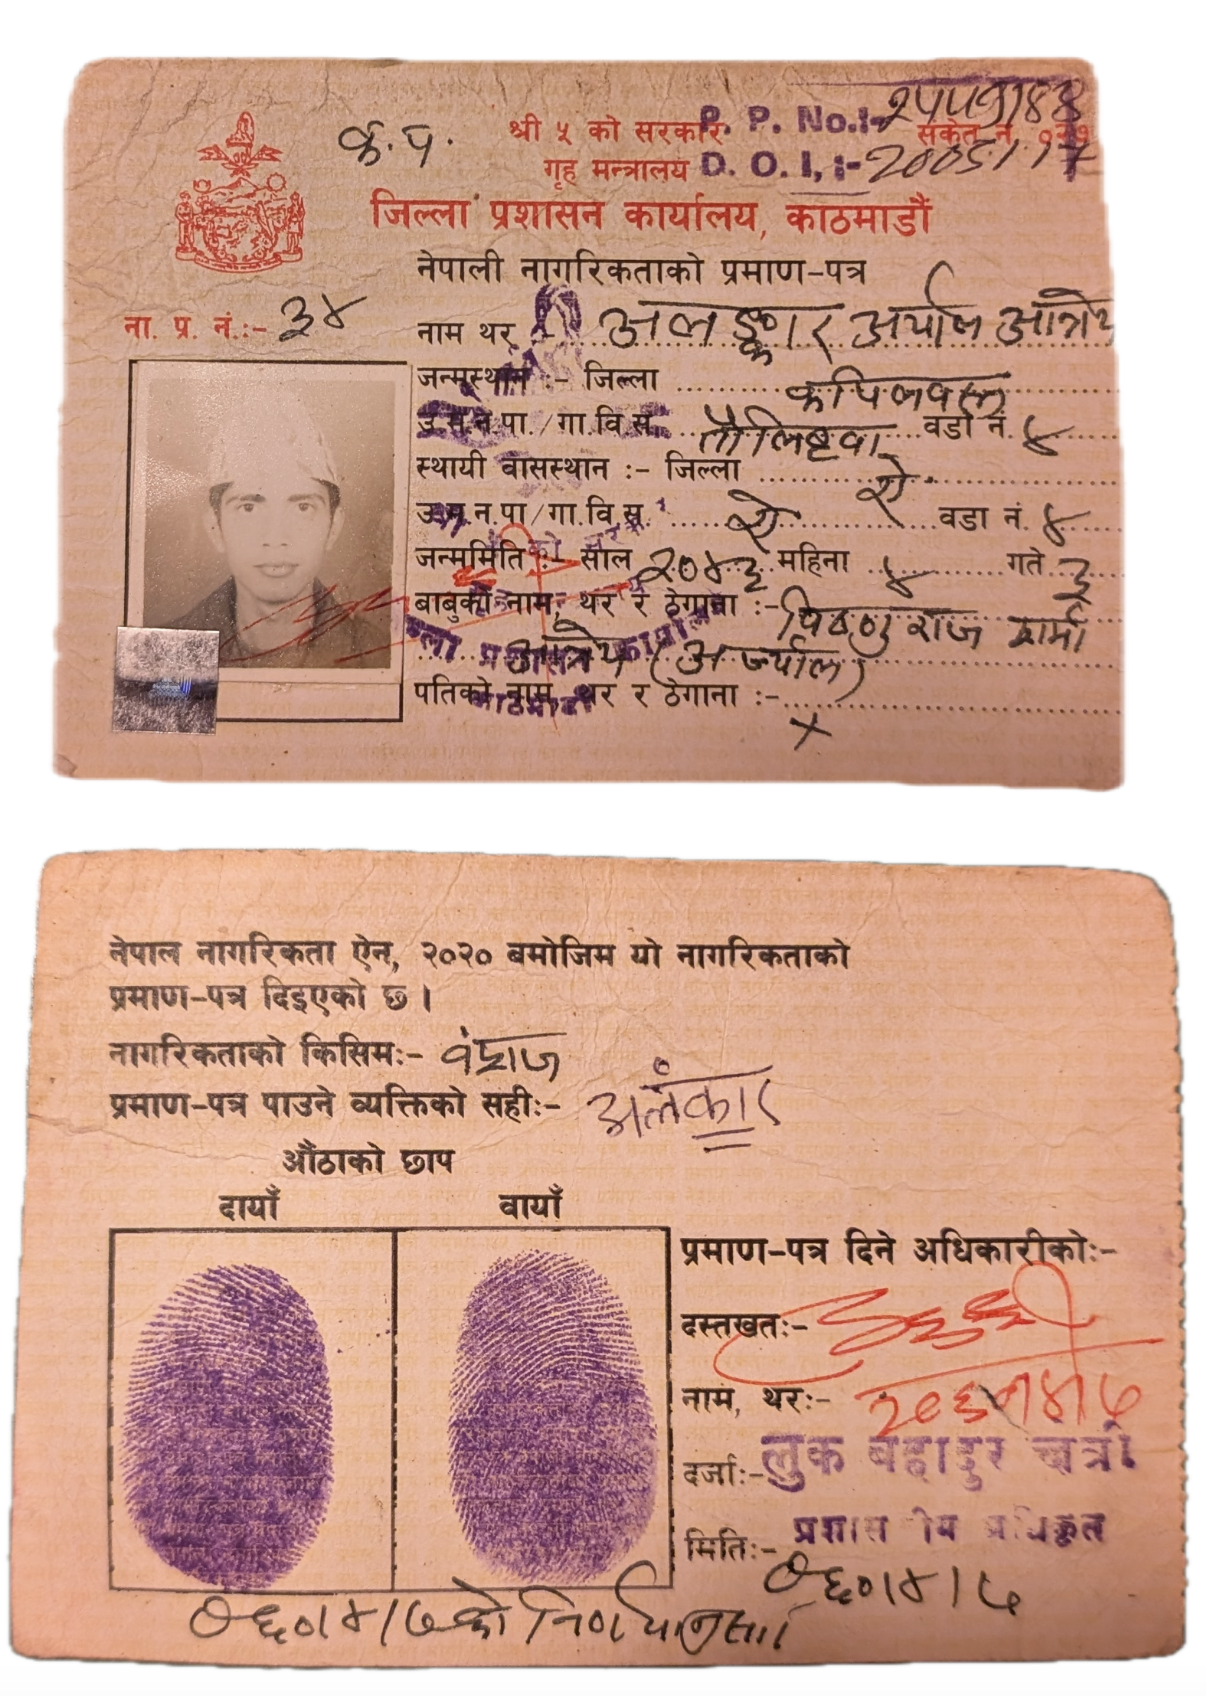 क. प.
श्री ५ को सरकार
P. P. No.:-
संकेत नं.
गृह मन्त्रालय
D. O. I, :-
जिल्ला प्रशासन कार्यालय, काठमाडौं
नेपाली नागरिकताको प्रमाण-पत्र
ना. प्र. नं.:- ३४
नाम थर :- अलङ्कार अर्याल आत्रेय
जन्मस्थान :- जिल्ला कपिलवस्तु
उ.म.न.पा./गा.वि.स. तौलिहवा वडा नं. ४
स्थायी बासस्थान :- जिल्ला ऐ.
उ.म.न.पा/गा.वि.स. ऐ वडा नं. ४
जन्ममिति :- साल २०४३ महिना ४ गते ३
बाबुको नाम, थर र ठेगाना :- विष्णु राज शर्मा
आत्रेय (अर्ज्याल)
पतिको नाम, थर र ठेगाना :-
×
नेपाल नागरिकता ऐन, २०२० बमोजिम यो नागरिकताको
प्रमाण-पत्र दिइएको छ ।
नागरिकताको किसिम:- वंशज
प्रमाण-पत्र पाउने व्यक्तिको सही:- अलंकार
औंठाको छाप
दायाँ वायाँ
प्रमाण-पत्र दिने अधिकारीको:-
दस्तखत:-
नाम, थर:-
दर्जा:- लुक बहादुर चत्री
मिति:- प्रशासकीय अधिकृत
०६०।४।७
०६०।४।७ को निर्णयानुसार